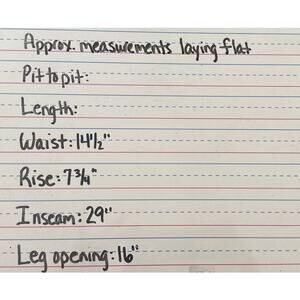 Approx. measurements laying flat
Pit to pit:
Length:
Waist: 14½"
Rise: 7¾"
Inseam: 29"
Leg opening: 16"